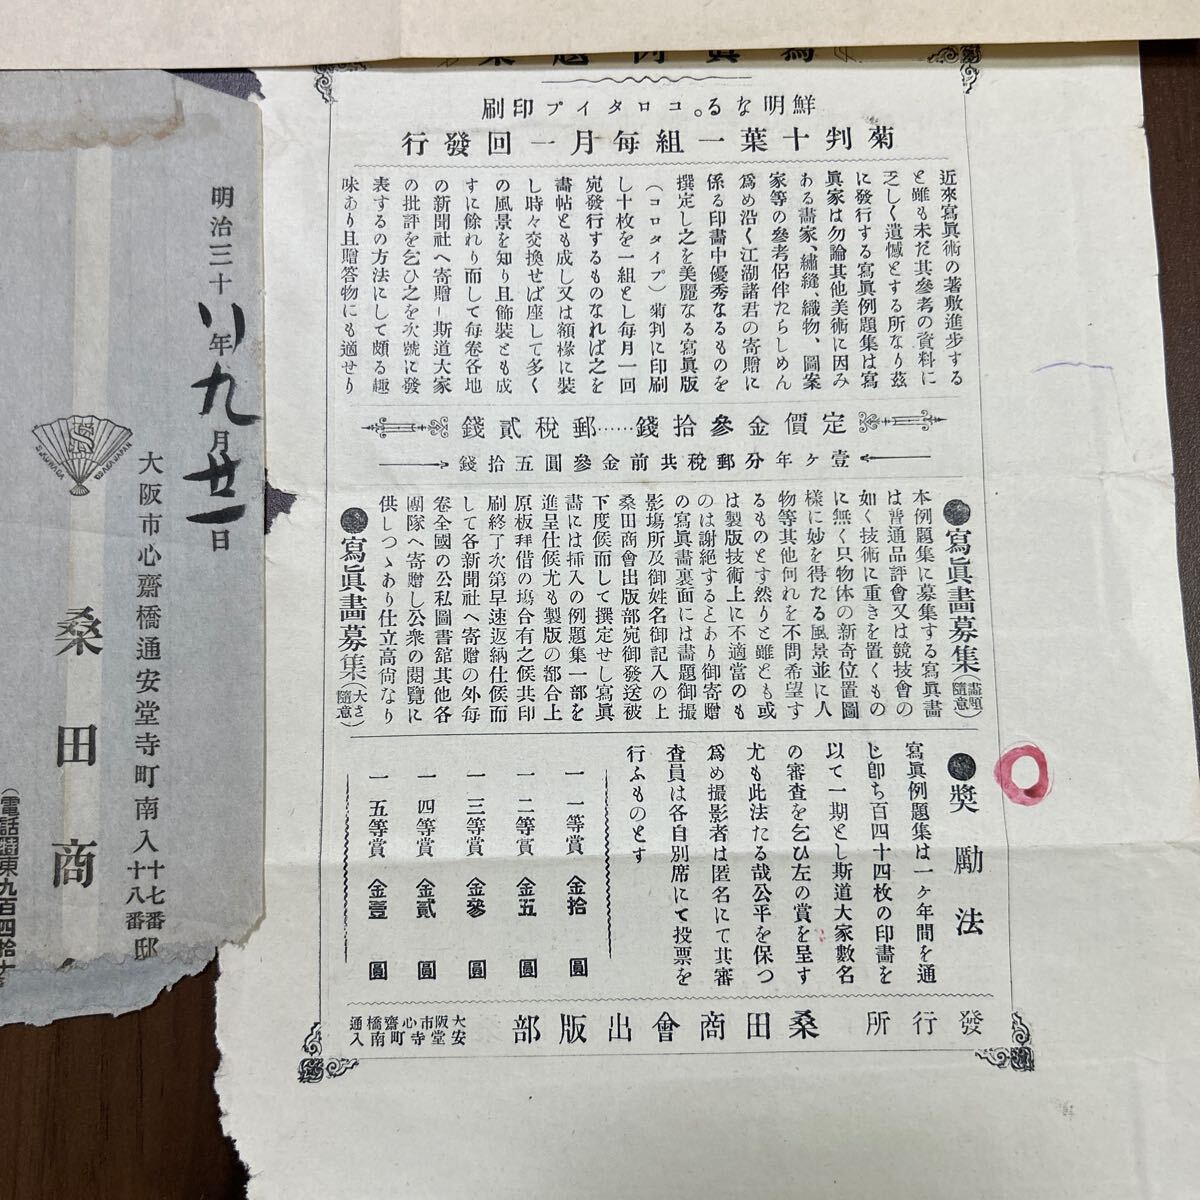 寫眞例題集
鮮明なる。コロタイプ印刷
菊判十葉一組每月一回發行
近來寫眞術の著敷進步する
と雖も未だ其參考の資料に
乏しく遺憾とする所なり茲
に發行する寫眞例題集は寫
眞家は勿論其他美術に因み
ある畵家、繡縫、織物、圖案
家等の參考侶伴たらしめん
爲め沿く江湖諸君の寄贈に
係る印畵中優秀なるものを
撰定し之を美麗なる寫眞版
(コロタイプ)菊判に印刷
し十枚を一組とし每月一回
宛發行するものなれば之を
畵帖とも成し又は額椽に裝
し時々交換せば座して多く
の風景を知り且飾裝とも成
すに餘れり而して每卷各地
の新聞社へ寄贈し斯道大家
の批評を乞ひ之を次號に發
表するの方法にして頗る趣
味あり且贈答物にも適せり
定價金參拾錢……郵稅貳錢
壹ヶ年分郵稅共前金參圓五拾錢
●寫眞畵募集(畵題隨意)
本例題集に募集する寫眞畵
は普通品評會又は競技會の
如く技術に重きを置くもの
に無く只物体の新奇位置圖
樣に妙を得たる風景並に人
物等其他何れを不問希望す
るものとす然りと雖とも或
は製版技術上に不適當のも
のは謝絶するとあり御寄贈
の寫眞畵裏面には畵題御撮
影塲所及御姓名御記入の上
桑田商會出版部宛御發送被
下度候而して撰定せし寫眞
畵には挿入の例題集一部を
進呈仕候尤も製版の都合上
原板拜借の塲合有之候共印
刷終了次第早速返納仕候而
して各新聞社へ寄贈の外每
卷全國の公私圖書舘其他各
團隊へ寄贈し公衆の閱覽に
供しつゝあり仕立高尙なり
●寫眞畵募集(大さ隨意)
●奬勵法
寫眞例題集は一ヶ年間を通
じ卽ち百四十四枚の印畵を
以て一期とし斯道大家數名
の審査を乞ひ左の賞を呈す
尤も此法たる哉公平を保つ
爲め撮影者は匿名にて其審
査員は各自別席にて投票を
行ふものとす
一一等賞 金拾圓
一二等賞 金五圓
一三等賞 金參圓
一四等賞 金貳圓
一五等賞 金壹圓
發行所 桑田商會出版部 大阪市心齋橋通安堂寺町南入
明治三十八年九月廿一日
大阪市心齋橋通安堂寺町南入十七番十八番邸
桑田商
(電話特東九百四拾
S.KUWADA OSAKA JAPAN